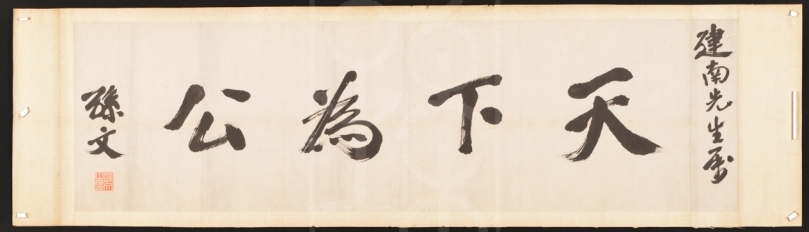 建南先生属
天下為公
孫文